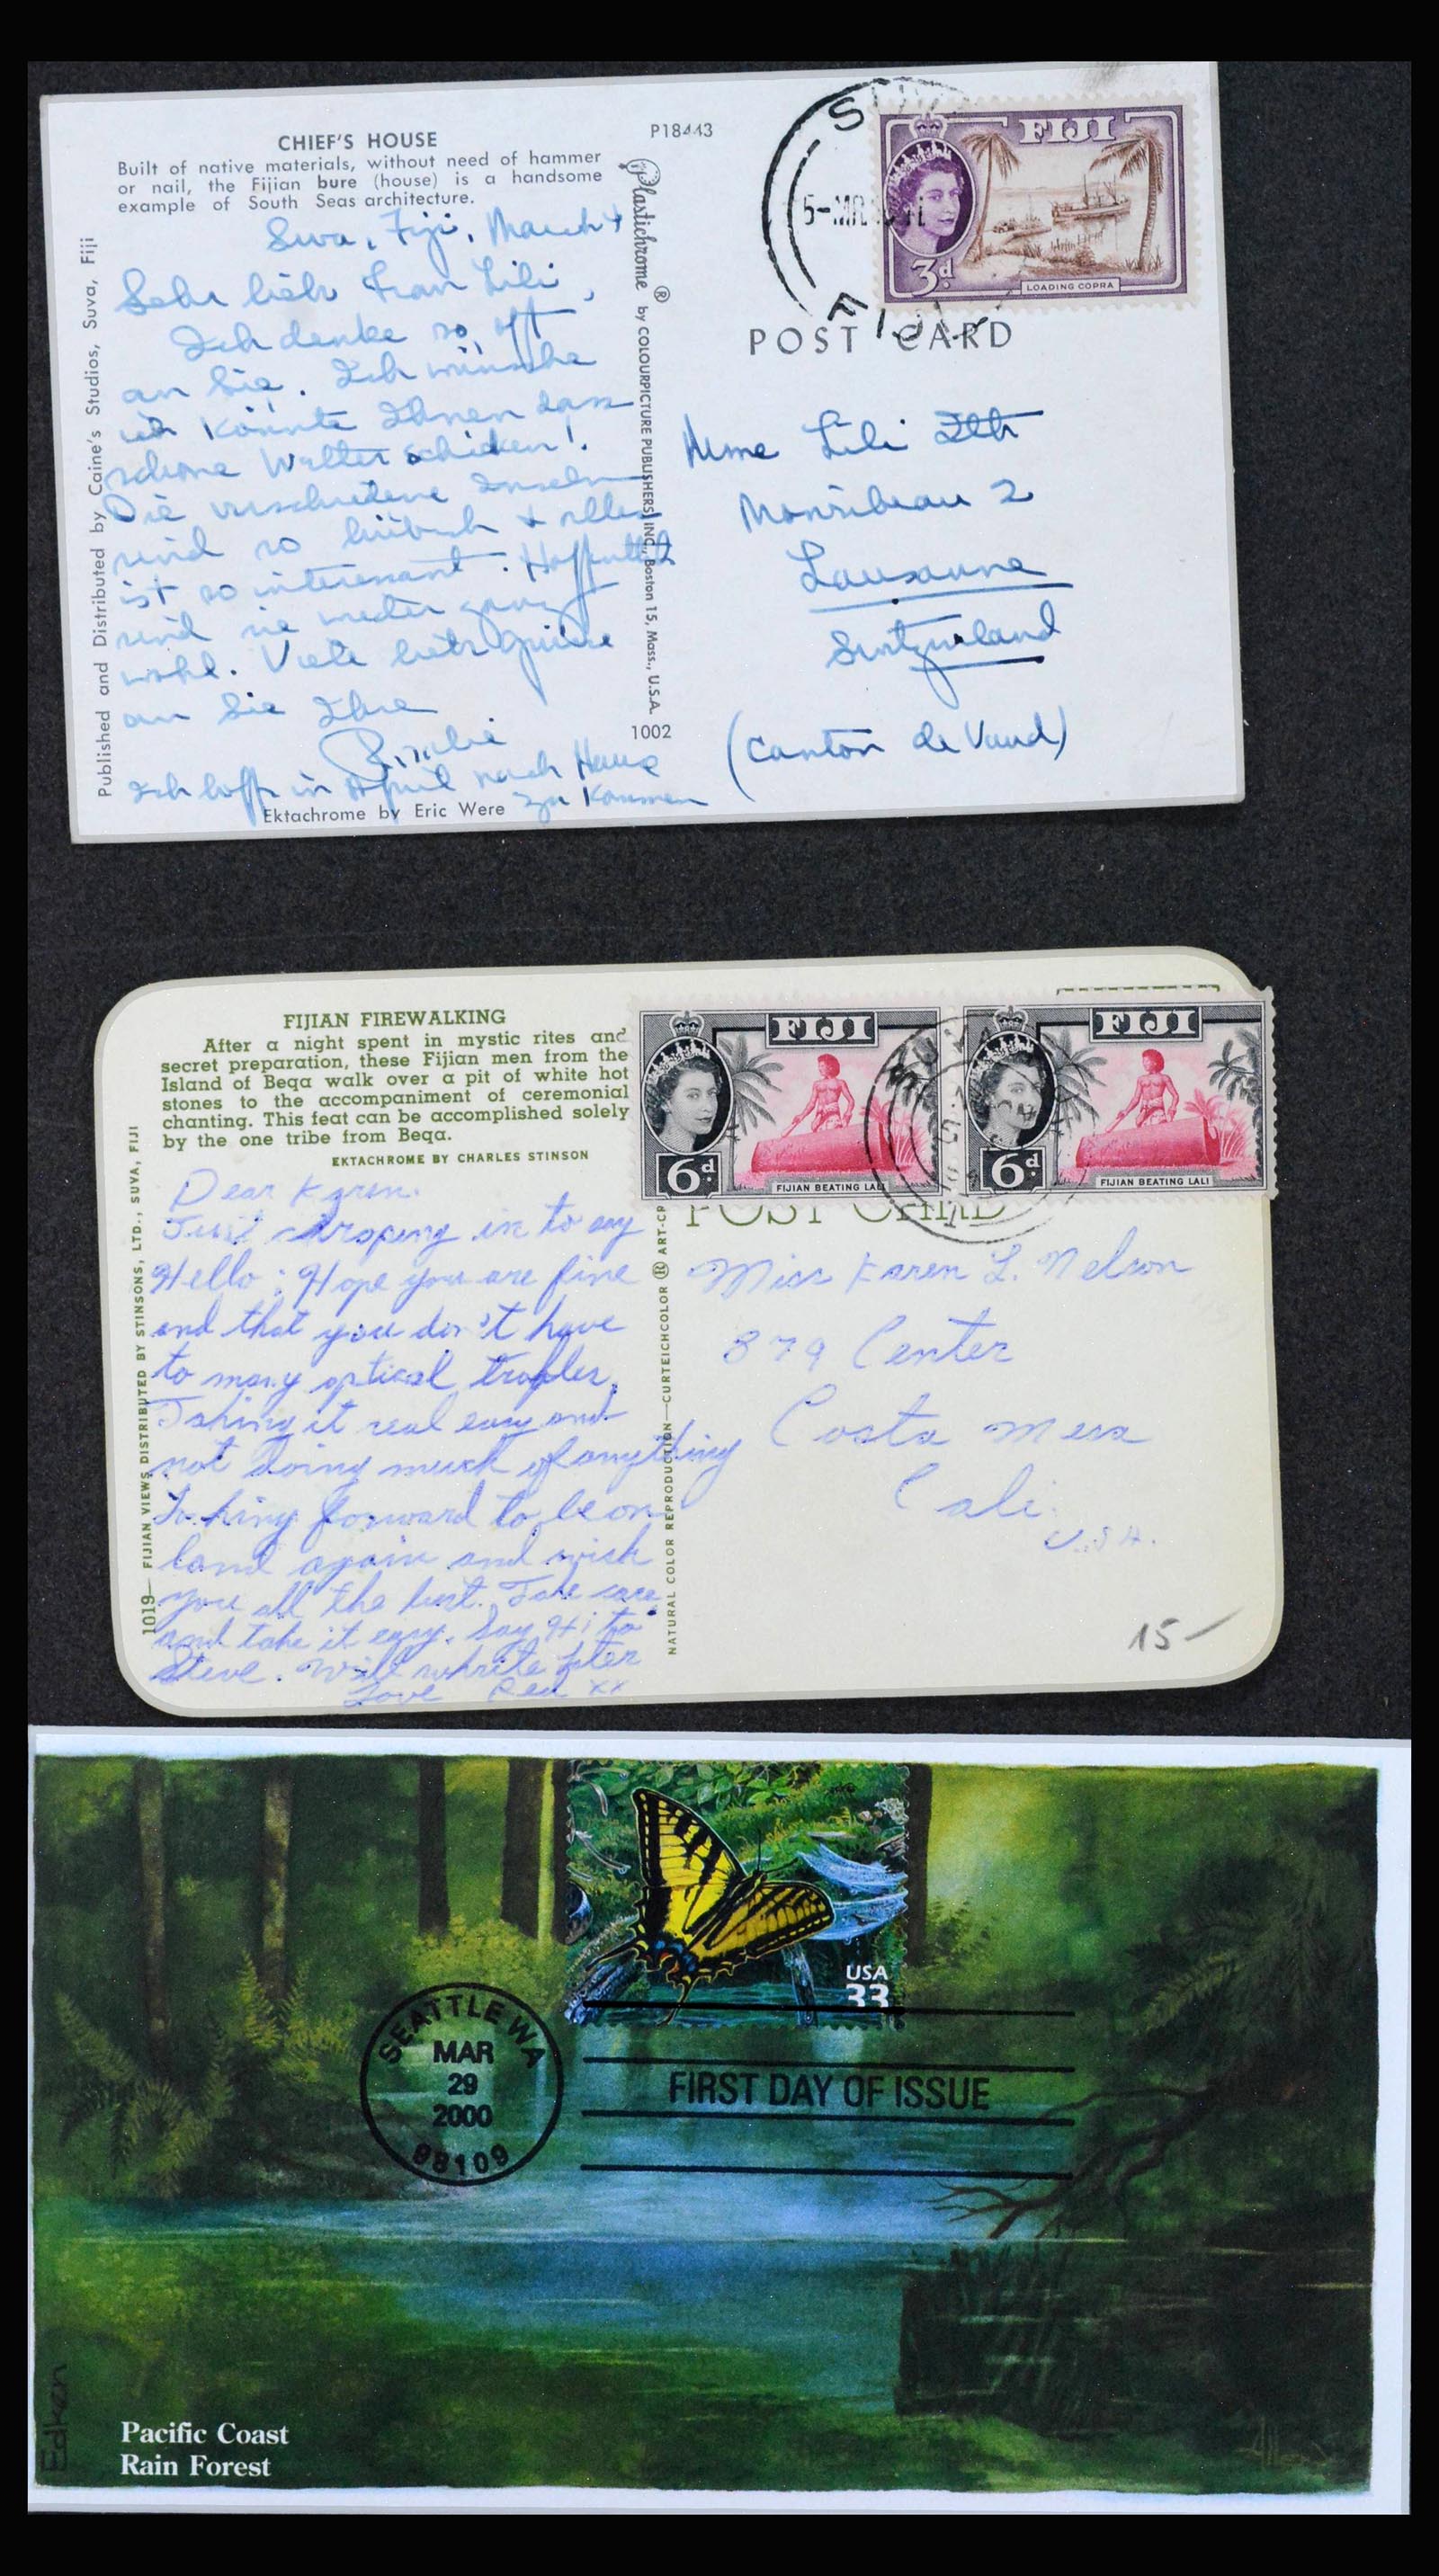 CHIEF'S HOUSE
Built of native materials, without need of hammer
or nail, the Fijian bure (house) is a handsome
example of South Seas architecture.
P18443
Suva, Fiji, March 4
Sehr lieb Frau Lili,
Ich denke so oft
an Sie. Ich wünsche
ich könnte Ihnen dass
schöne Wetter schicken!
Die verschiedene Inseln
sind so hübsch + alles
ist so interessant. Hoffentlich
sind sie wieder ganz
wohl. Viele herz Grüsse
an Sie Ihre
Ich hoffe in April nach Hause
zu kommen
Ektachrome by Eric Were
Published and Distributed by Caine's Studios, Suva, Fiji
Plastichrome ® by COLOURPICTURE PUBLISHERS, INC., Boston 15, Mass., U.S.A.
1002
FIJI
3d
LOADING COPRA
FIJI
POST CARD
Mme Lili
2
Lausanne
Switzerland
(Canton de Vaud)
FIJIAN FIREWALKING
After a night spent in mystic rites and
secret preparation, these Fijian men from the
Island of Beqa walk over a pit of white hot
stones to the accompaniment of ceremonial
chanting. This feat can be accomplished solely
by the one tribe from Beqa.
EKTACHROME BY CHARLES STINSON
Dear Karen.
Just droping in to say
Hello; Hope you are fine
and that you don't have
to many optical
Taking it real easy and
not doing much of anything
Looking forward to be on
land again and wish
you all the best. Take care
and take it easy. Say Hi to
Steve. Will whrite later
Love xx
1019— FIJIAN VIEWS DISTRIBUTED BY STINSONS, LTD., SUVA, FIJI
NATURAL COLOR REPRODUCTION—CURTEICHCOLOR ® ART-CR
FIJI
6d
FIJIAN BEATING LALI
FIJI
6d.
FIJIAN BEATING LALI
SUVA
POST CARD
Miss Karen L. Nelson
879 Center
Costa Mesa
Cali.
U.S.A.
15-
USA
33
SEATTLE WA
MAR
29
2000
98109
FIRST DAY OF ISSUE
Edken
Pacific Coast
Rain Forest